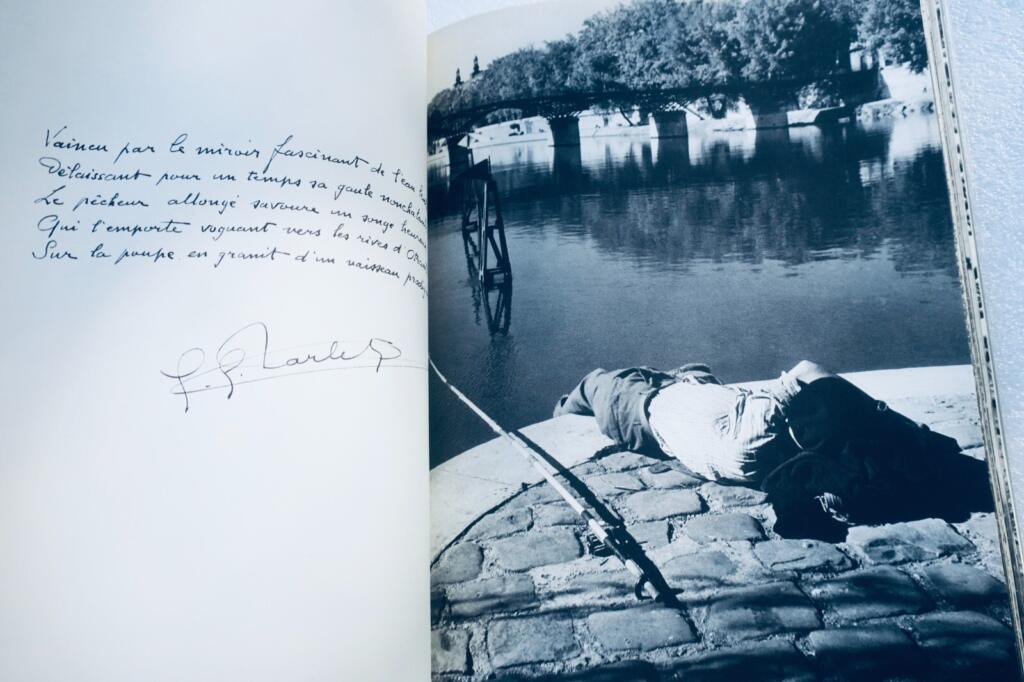 Vaincu par le miroir fascinant de l'eau
Délaissant pour un temps sa gaule
Le pêcheur allongé savoure un songe
Qui l'emporte voguant vers les rives
Sur la poupe en granit d'un vaisseau